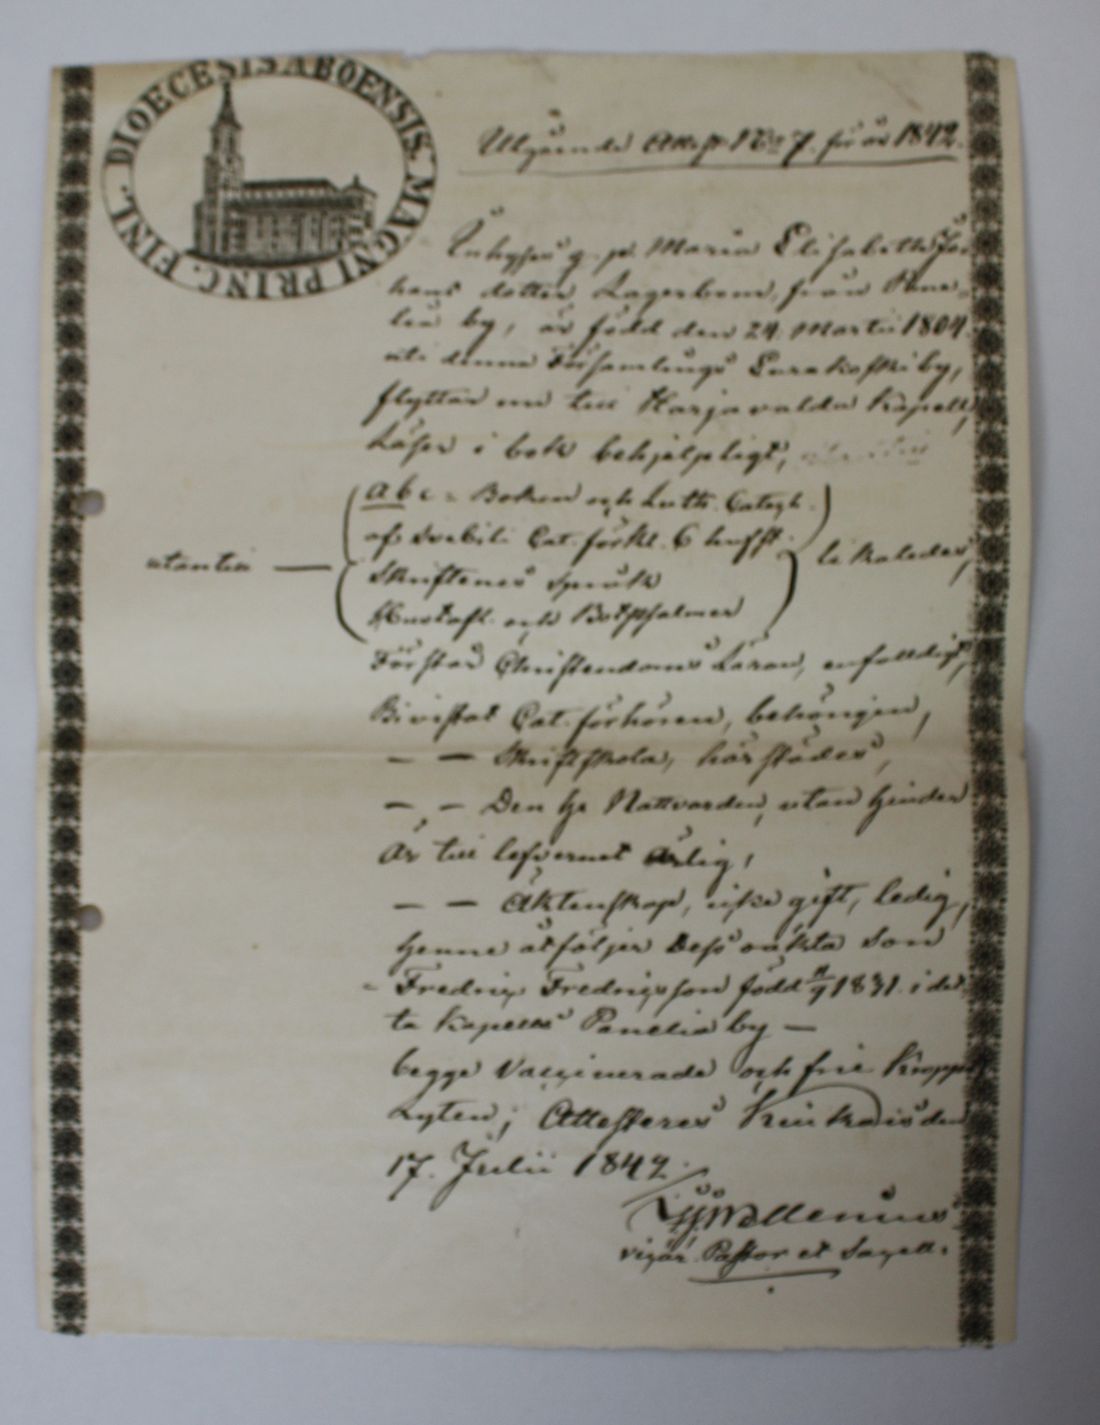 DIOECESIS ABOENSIS. MAGNI PRINC. FINL.
Utgående Attest No 7. för år 1842.
Inhyses q. p. Maria Elisabeth Jo-
hans dotter Lagerbom, från Pane-
lia by, är född den 24. Martii 1804.
uti denna Församlings Eurakoski by,
flyttar nu till Harjavalda Kapell,
Läser i bok behjelpligt,
Abc-Boken och Luth. Catech.
afs Svebilii Cat. förkl. 6 hufst.
utantill — likaledes,
Skriftenes Språk
och Botpsalmer
Förstår Christendoms Läran, enfaldigt,
Bivistat Cat. förhören, behörigen,
— — Skriftskola, härstädes,
— „ — Den H. Nattvarden, utan hinder
Är till lefvernet ärlig,
— — Äktenskap, icke gift, ledig,
Henne åtföljer Dess oäkta Son
Fredric Fredricsson född 1831. i det-
ta Kapells Panelia by —
begge Vaccinerade och frie Kropps
Lyten; Attesteres Kiukais den
17. Julii 1842.
vicar. Pastor et Sacell.